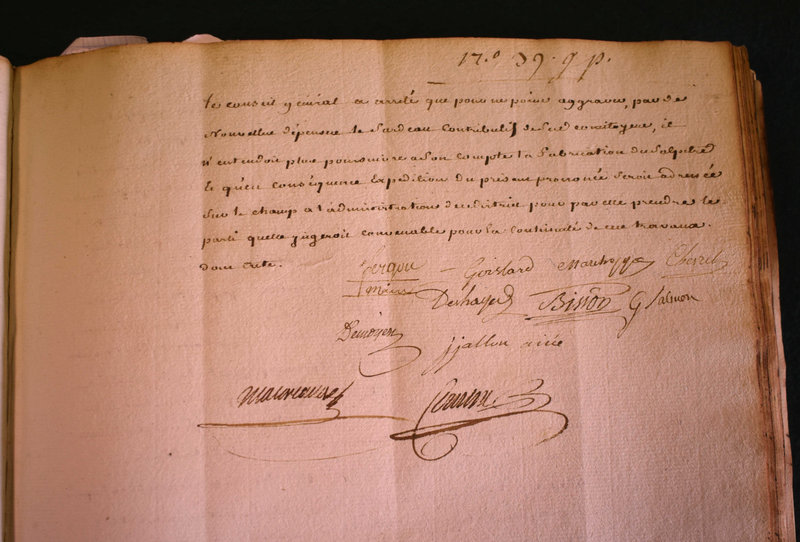 17.º 39. g p.
Le conseil general a arrelé que pour ne point aggraver, par de
Nouvelles dépenses le fardeau contributif de ses concitoyens, il
N'entendoit plus poursuivre a son compte la fabrication du Salpetre
Et qu'en conséquence Expedition du présent prononcé seroit adressée
sur le champ a l'administration du district pour par elle prendre le
parti quelle jugeroit convenable pour la continuité de ces travaux.
dont acte.
Goislard
Deshayes Bisson G Salmon
jjallon ainé